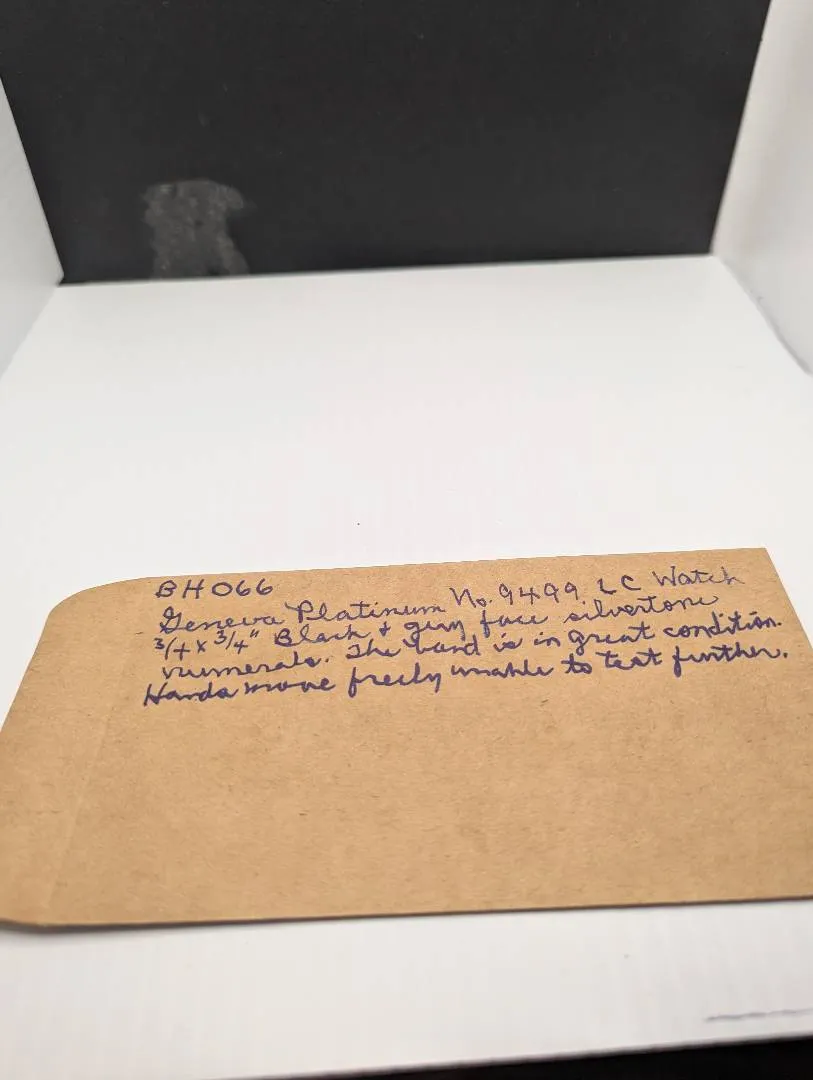 BH066
Geneva Platinum No. 9499 LC Watch
3/4 x 3/4" Black & grey face silvertone
numerals. The band is in great condition.
Hands move freely unable to test further.